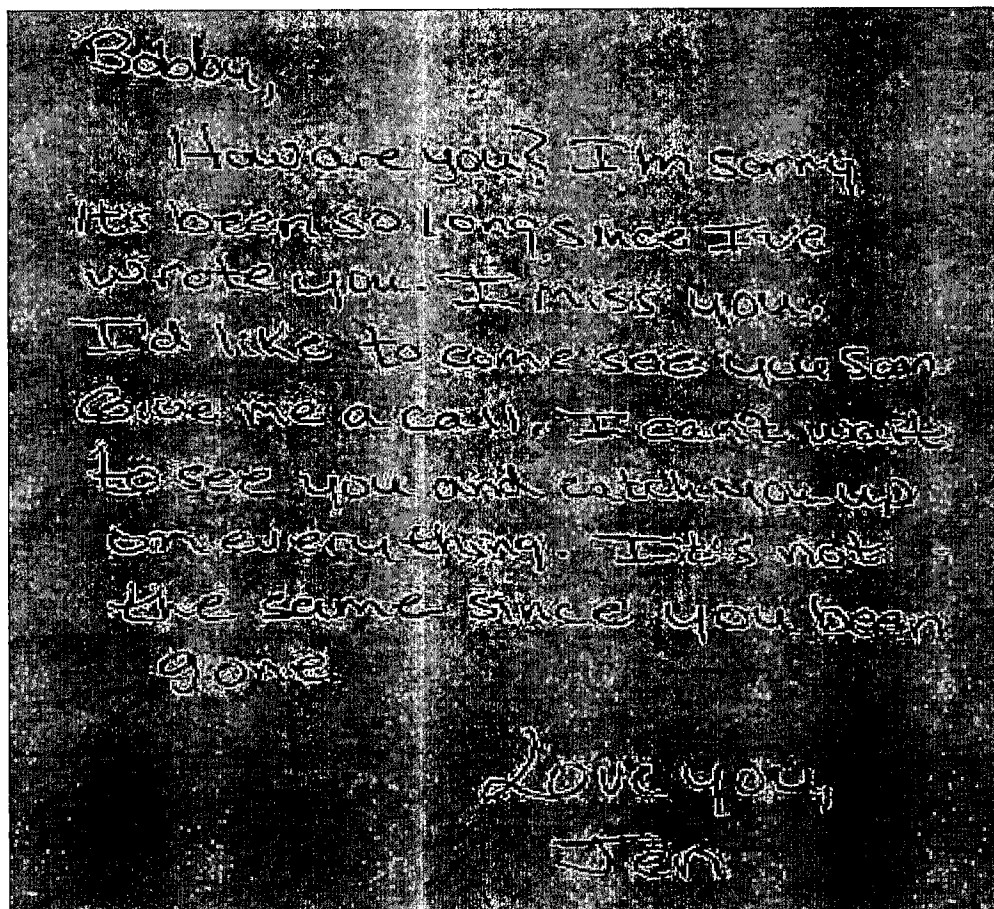 Bobby,
How are you? I'm sorry
It's been so long since I've
wrote you. I miss you.
I'd like to come see you soon
Give me a call. I can't wait
to see you and catch you up
on everything. It's not
the same since you been
gone
Love you,
Jen